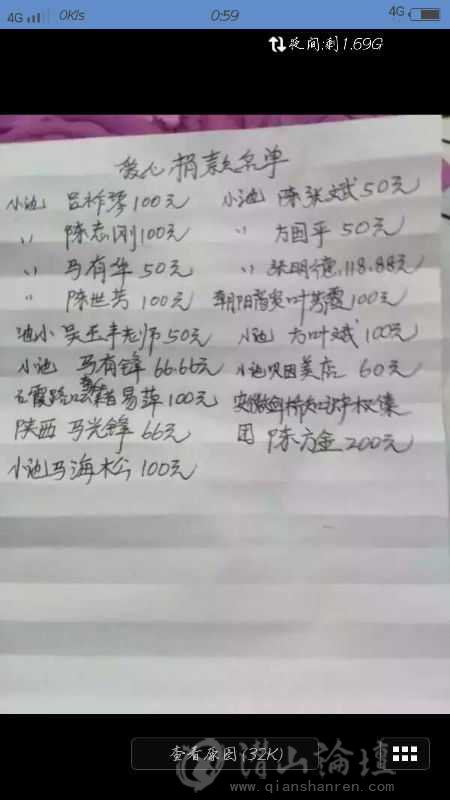 4G 0K/s 0:59 4G
夜间:剩1.69G
爱心捐款名单
小池 吕柞琴100元 小池 陈张斌50元
〃 陈志刚100元 〃 方国平 50元
〃 马有华 50元 〃 张明德.118.88元
〃 陈世芳 100元 朝阳 叶芳霞100元
池小 吴玉丰老师50元 小池 方叶斌100元
小池 马有锋 66.66元 小池 美店 60元
石霞路 易萍100元 安徽剑桥知识产权集
陕西 马光锋 66元 团 陈方金200元
小池马海松100元
查看原图(32K)
潜山论坛
www.qianshanren.com